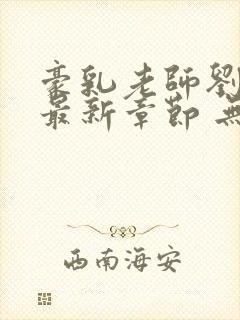 豪乳老師劉
最新章節 無
西南海安